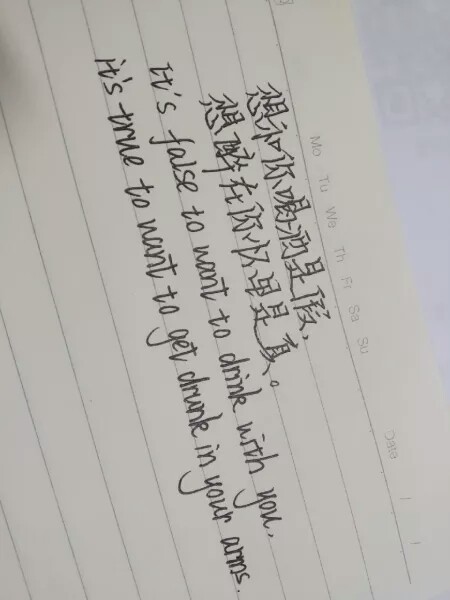 Mo Tu We Th Fr Sa Su
Date / /
想和你喝酒是假,
想醉在你怀里是真。
It's false to want to drink with you,
it's true to want to get drunk in your arms.